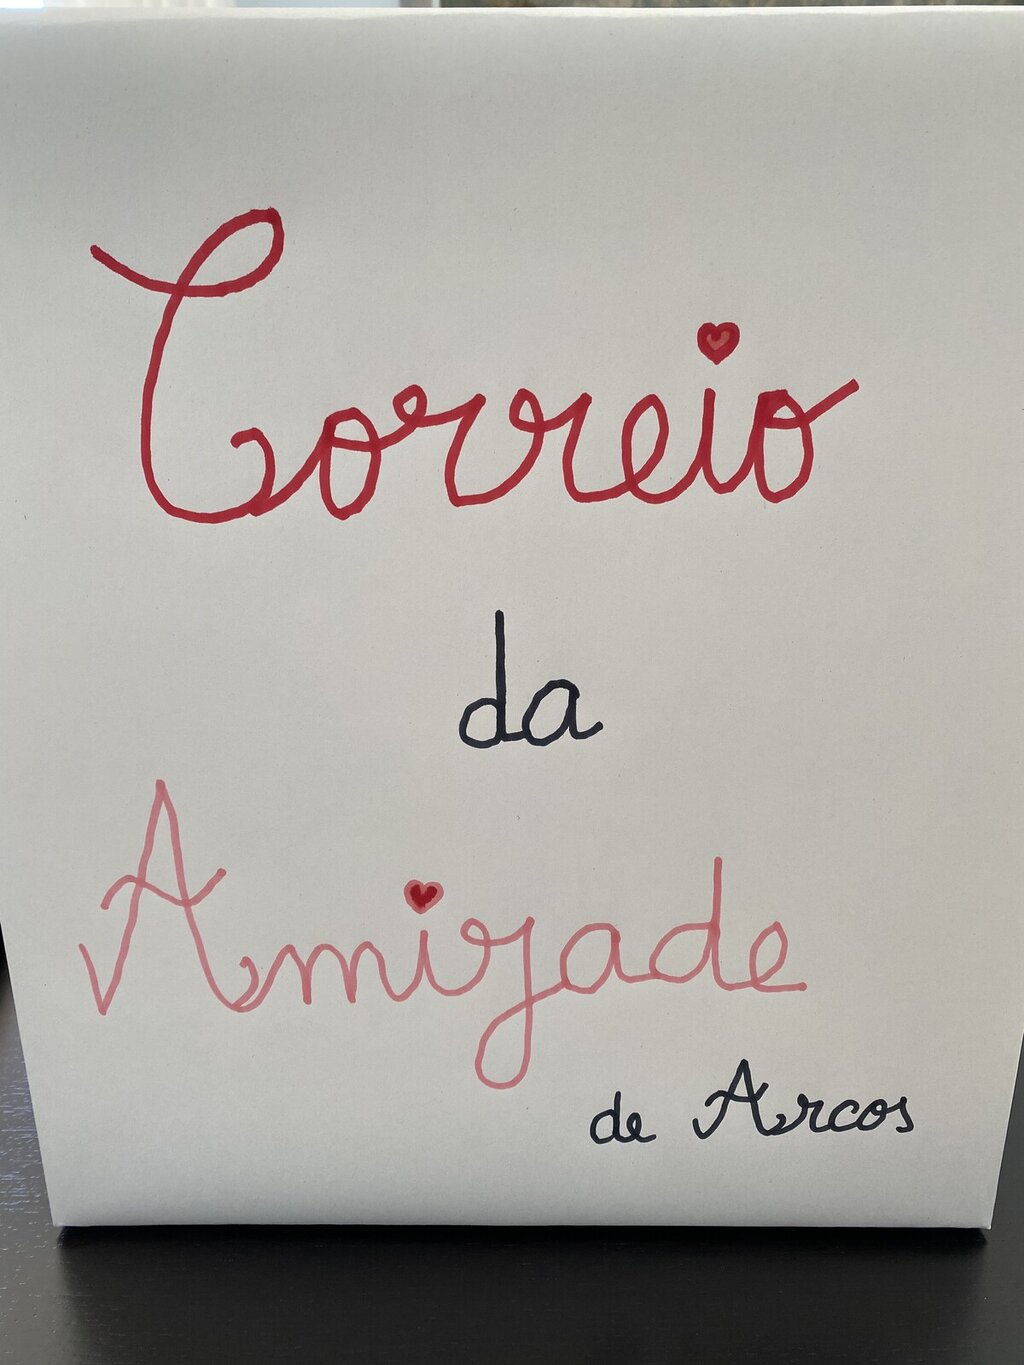 Correio
da
Amizade
de Arcos